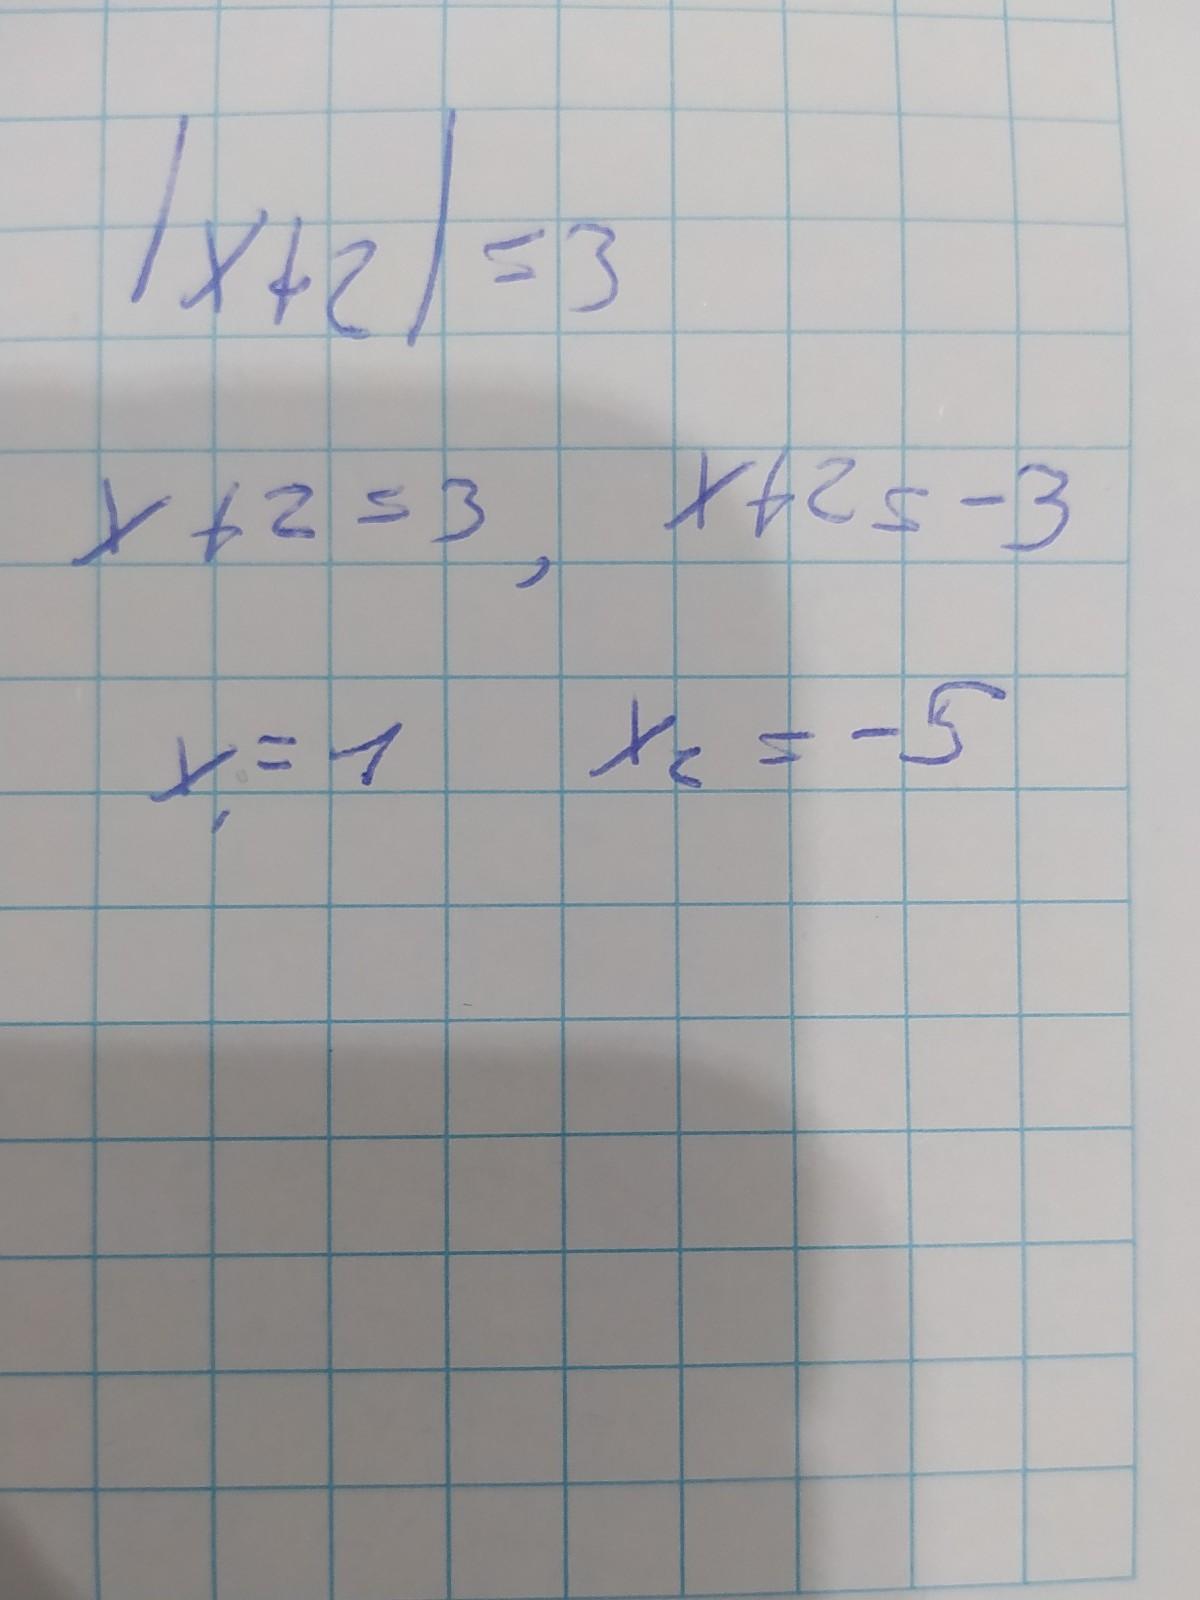 |x+2|=3
x+2=3, x+2=-3
x₁=1 x₂=-5